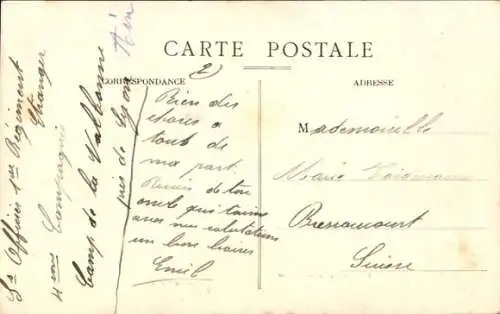 CARTE POSTALE
CORRESPONDANCE
2
ADRESSE
Bien des
choses a
tout de
ma part.
de ton
oncle qui t'aime
avec mes salutations
un bon baiser
Emil
Mademoiselle
Marie
Bressaucourt
Suisse
Ss Officier 1er Régiment
Etranger
4me Compagnie
Camp de la Valbonne
près de Lyon
Ain